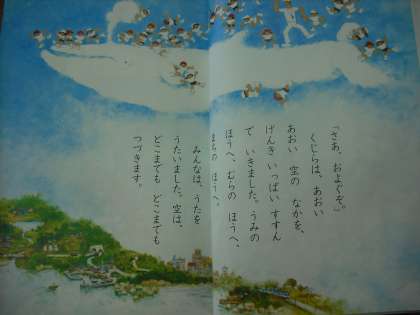 「さあ、およぐぞ。」
くじらは、あおい
あおい 空の なかを、
げんき いっぱい すすん
で いきました。うみの
ほうへ、むらの ほうへ、
まちの ほうへ。
みんなは、うたを
うたいました。空は、
どこまでも どこまでも
つづきます。